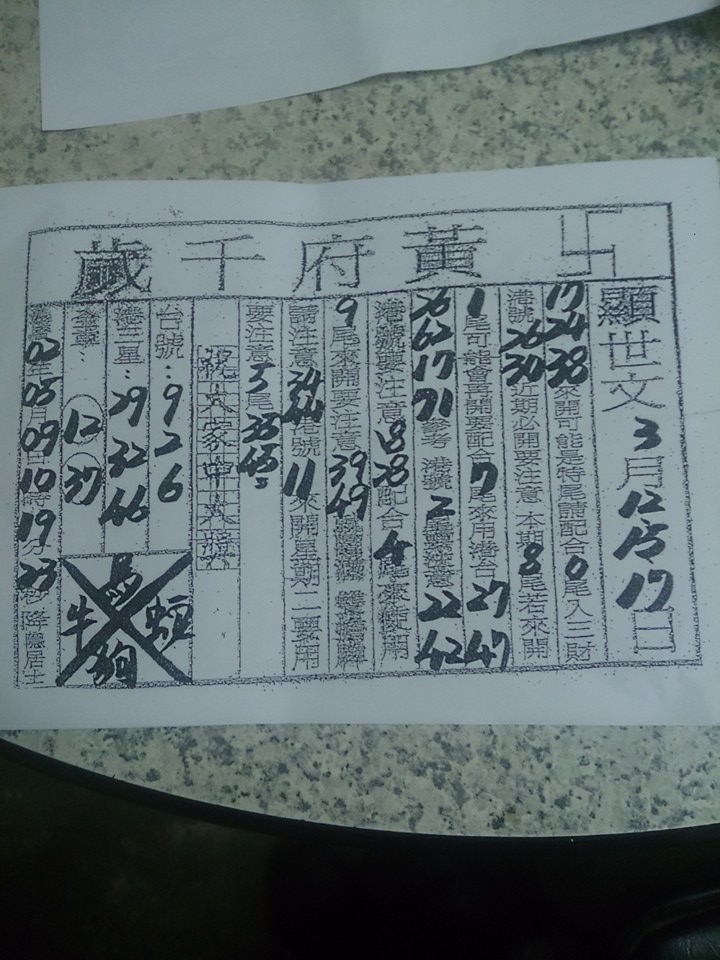 卐黃府千歲
顯世文3月12 15 17日
17 24 38來開可能是特尾請配合0尾入三財
港號26 30近期必開要注意 本期8尾若來開
1尾可能會再開要配合7尾來用港台27 47
26 62 17 71參考 港號2尾 注意22 42
港號要注意18 28配合4尾來使用
9尾來開要注意39 49
請注意34 44港號11來開星期二要用
要注意5尾35 45
祝大家中大獎
台號:9 2 6
港三星:29 32 46
12 37
馬
牛
蛇
狗
02年05月09日10時19分23秒 降隱居士